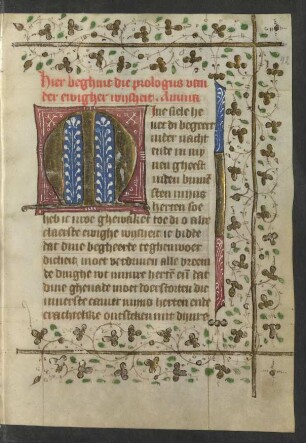 Hier beghint die prologus van
der ewigher wijsheit. Anima
Mine siele he
uet di begeert
inder nacht
ende in my
nen gheest
inden binne
sten mijns
herten soe
heb ic mye ghewaket toe di o alre
claerste ewighe wijsheit ic bidde
dat dine begheerte teghenwoer
dicheit moet verdriuen alle vreem
de dinghe wt minre herten en dat
dine ghenade moet doerstorten die
innerste camer mijns herten ende
crachtelike ontsteken mit dijnre